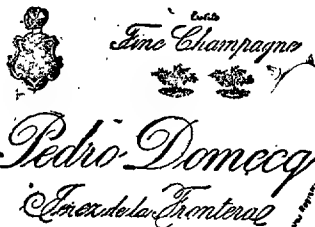 Estilo
Fine Champagne
Pedro Domecq
Jerez de la Frontera